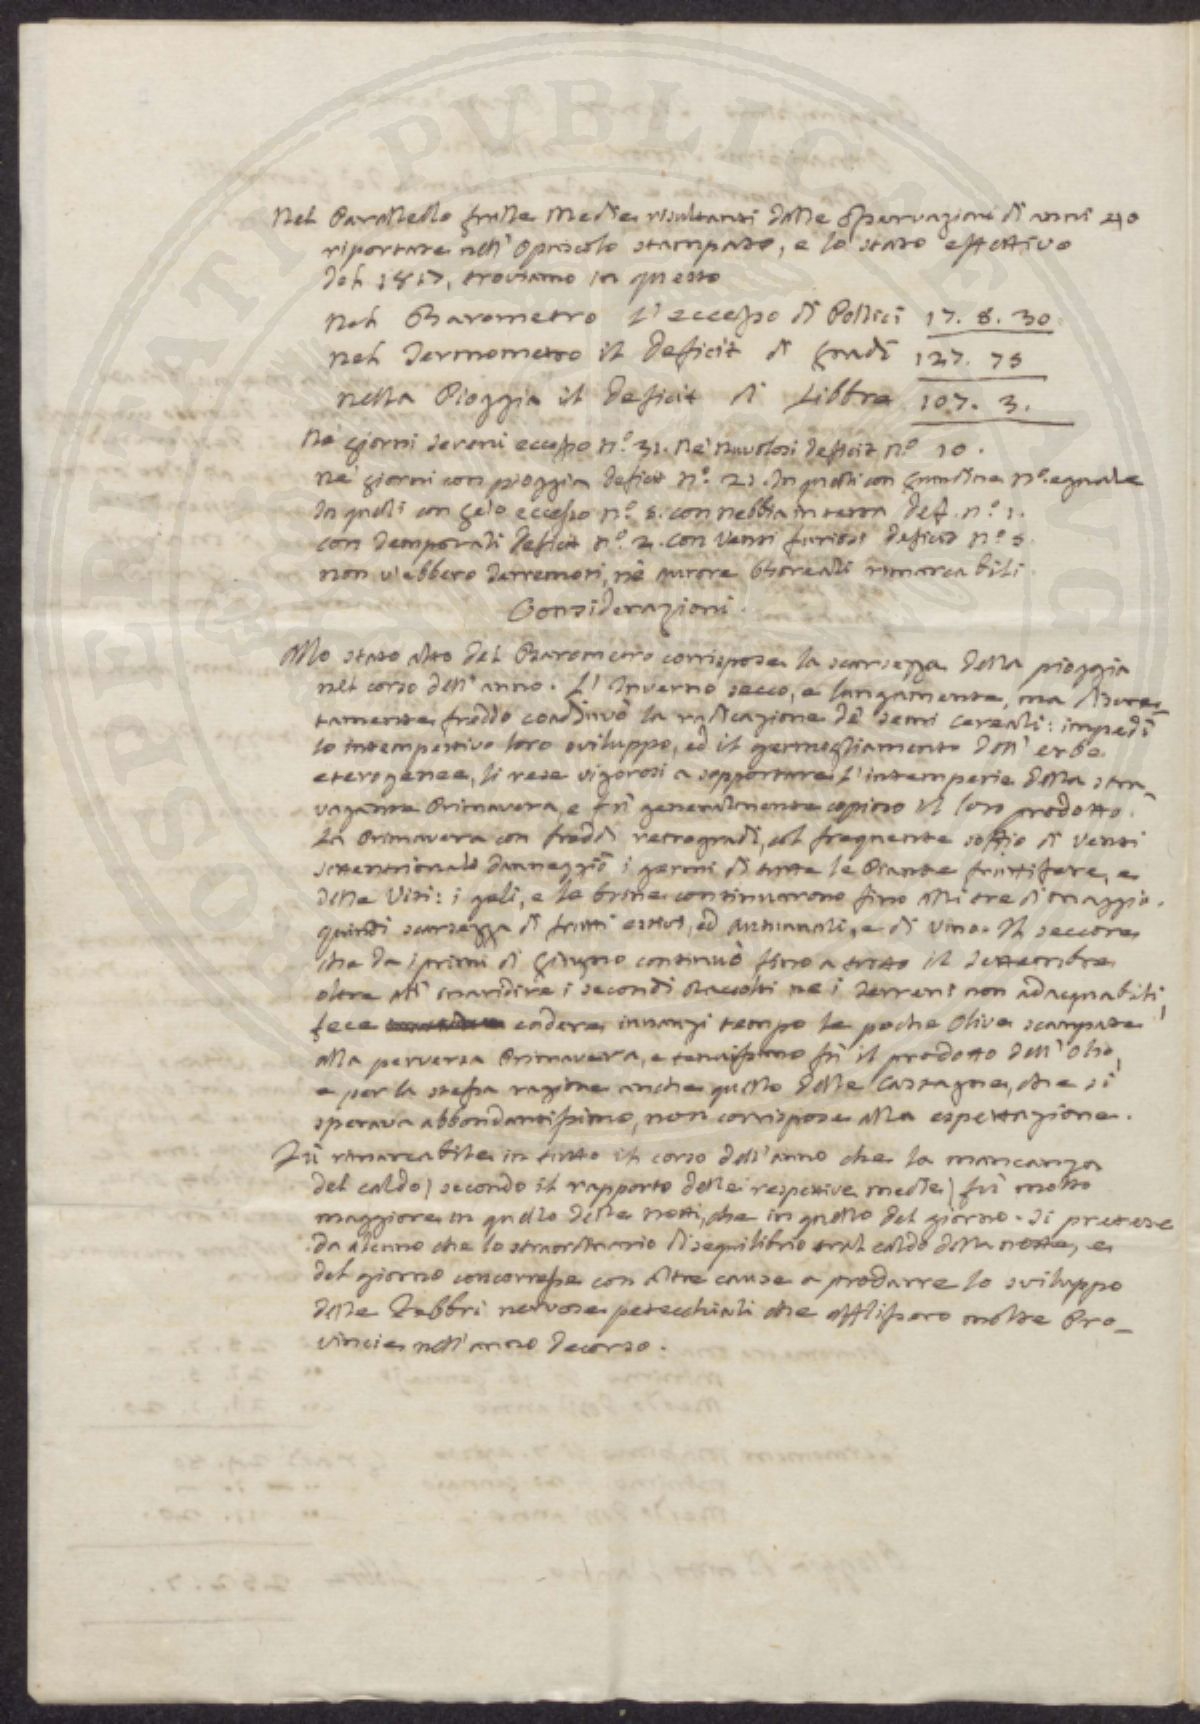 Nel Parallello fralle Medie risultanti dalle Osservazioni di anni 40
riportate nell' Opuscolo stampato, e lo stato effettivo
del 1817, troviamo in questo
Nel Barometro l'eccesso di Pollici 17. 8. 30
Nel Termometro il deficit di Gradi 127. 75
Nella Pioggia il deficit di Libbre 107. 3.
Ne' giorni sereni eccesso n.º 31. Ne' nuvolosi deficit n.º 10.
Ne' giorni con pioggia deficit n.º 21. In quelli con grandine n.º eguale
In quelli con gelo eccesso n.º 8. con nebbia in terra def. n.º 1.
con temporali deficit n.º 2. con Venti furiosi deficit n.º 5.
non v'ebbero terremoti, nè aurore Boreali rimarcabili.
Considerazioni.
Allo stato alto del Barometro corrispose la scarsezza della pioggia
nel corso dell'anno. L'Inverno secco, e lungamente, ma discre-
tamente freddo coadjuvò la radicazione de' semi Cereali: impedì
lo intempestivo loro sviluppo, ed il germogliamento dell'erbe
eterogenee, li rese vigorosi a sopportare l'intemperie della stra-
vagante Primavera, e fù generalmente copioso il loro prodotto.
La Primavera con freddi retrogradi, col frequente soffio di Venti
settentrionali danneggiò i germi di tutte le Piante fruttifere, e
delle Viti: i geli, e le brine continuarono fino alli tre di Maggio.
quindi scarsezza di frutti estivi, ed autunnali, e di vino. Il seccore
che da i primi di Giugno continuò fino a tutto il Settembre
oltre all' inaridire i secondi Raccolti ne i terreni non adacquabili,
fece cadere innanzi tempo le poche Olive scampate
alla perversa Primavera, e tenuissimo fù il prodotto dell'Olio,
e per la stessa ragione anche quello delle Castagne, che si
sperava abbondantissimo, non corrispose alla espettazione.
Fù rimarcabile in tutto il corso dell'anno che la mancanza
del caldo (secondo il rapporto delle respettive medie) fù molto
maggiore in quello delle notti, che in quello del giorno. Si pretese
da alcuno che lo straordinario disequilibrio tral caldo della notte, e
del giorno concorresse con altre cause a produrre lo sviluppo
delle Febbri nervose petecchiali che afflissero molte Pro-
vincie nell'anno decorso.